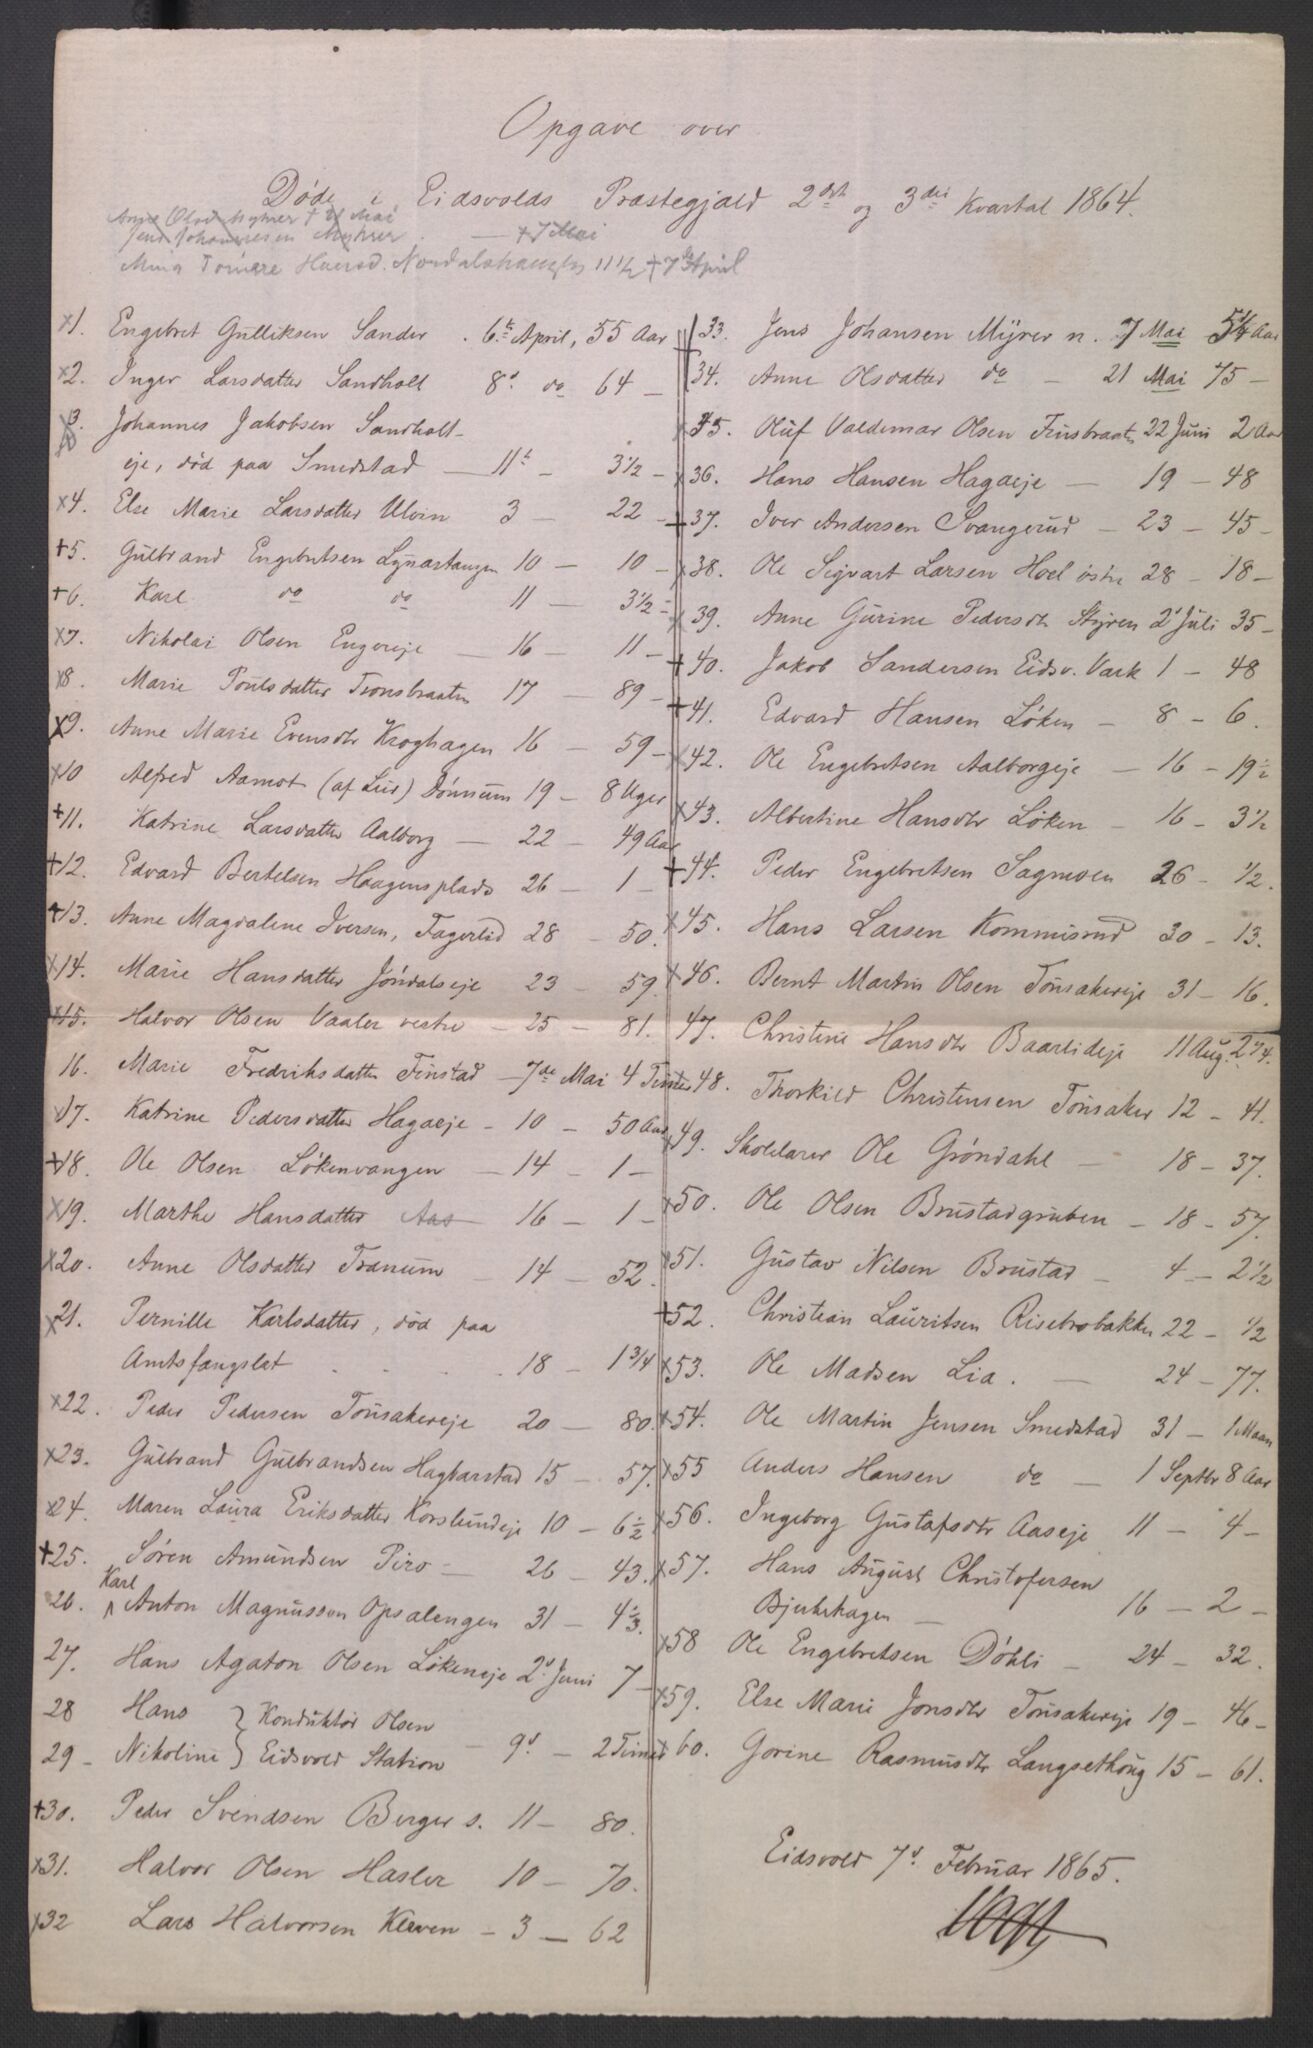 Opgave over
Døde i Eidsvolds Præstegjæld 2det og 3die Kvartal 1864.
Anne Olsd Myhrer + 21 Mai
Jens Johannesen Myhrer - + 7 Mai
Nordalshaugen 11 1/2 + 7de April
x1. Engebret Gulliksen Sander . 6te April, 55 Aar
x2. Inger Larsdatter Sandholt 8d do 64 -
x3. Johannes Jakobsen Sandholt-
eje, død paa Smedstad - 11te - 3 1/2 -
x4. Else Marie Larsdatter Ulvin 3 - 22 -
+5. Gulbrand Engebretsen Lynartangen 10 - 10 -
+6. Karl do do 11 - 3 1/2 -
x7. Nikolai Olsen Engereje - 16 - 11 -
x8. Marie Poulsdatter Tronsbraaten 17 - 89 -
x9. Anne Marie Evensdtr Kroghagen 16 - 59 -
x10 Alfred Aamot (af Lier) Dønnum 19 - 8 Uger
+11. Katrine Larsdatter Aalborg - 22 - 49 Aar
+12. Edvard Bertelsen Haagensplads 26 - 1 -
+13. Anne Magdalene Iversen, Fagerlid 28 - 50.
x14. Marie Hansdatter Jøndalseje 23 - 59.
x15. Halvor Olsen Vaaler vestre - 25 - 81.
16. Marie Fredriksdatter Finstad - 7de Mai 4 Timer
x17. Katrine Pedersdatter Hagaeje - 10 - 50 Aar
+18. Ole Olsen Løkenvangen - 14 - 1 -
x19. Marthe Hansdatter Aas - 16 - 1 -
x20. Anne Olsdatter Tranum - 14 - 52.
x21. Pernille Karlsdatter, død paa
Amtsfængslet . . . . 18 - 1 3/4
x22. Peder Pedersen Tønsakereje 20 - 80.
x23. Gulbrand Gulbrandsen Hagbarstad 15 - 57.
x24. Maren Laura Eriksdatter Korslundeje 10 - 6 1/2
+25. Søren Amundsen Piro - 26 - 43.
26. Karl Anton Magnusson Opsalengen 31 - 4 1/3.
27. Hans Agaton Olsen Løkeneje 2d Juni 7 -
28 Hans } Konduktør Olsen
29 - Nikoline } Eidsvold Station - 9d - 2 Timer
+30. Peder Svendsen Berger s. 11 - 80.
x31. Halvor Olsen Hasler 10 - 70.
x32 Lars Halvorsen Kleven - 3 - 62
33. Jens Johansen Myrer n. 7 Mai 54 Aar
34. Anne Olsdatter do - 21 Mai 75 -
x35. Oluf Valdemar Olsen Finsbraaten 22 Juni 2 Aar
x36. Hans Hansen Hagaeje - 19 - 48
+37. Iver Andersen Svangerud - 23 - 45 -
x38. Ole Sigvart Larsen Hoel østre 28 - 18 -
x39. Anne Gurine Pedersdtr Styren 2d Juli 35 -
+40. Jakob Sandersen Eidsv. Værk 1 - 48
+41. Edvard Hansen Løken - 8 - 6.
x42. Ole Engebretsen Aalborgeje - 16 - 19 1/2
x43. Albertine Hansdtr Løken - 16 - 3 1/2
+44. Peder Engebretsen Sagmoen 26 - 1/2.
x45. Hans Larsen Kommisrud 30 - 13.
x46. Bernt Martin Olsen Tønsakereje 31 - 16.
47. Christine Hansdtr Baarlideje 11 Aug. 2 1/4.
48. Thorkild Christensen Tønsaker 12 - 41.
x49. Skolelærer Ole Grøndahl - 18 - 37.
x50. Ole Olsen Brustadgruben - 18 - 57.
x51. Gustav Nilsen Brustad - 4 - 2 1/2
+52. Christian Lauritsen Risebrobakken 22 - 1/2
x53. Ole Madsen Lia . - 24 - 77.
x54. Ole Martin Jensen Smedstad 31 - 1 Maan
x55 Anders Hansen do - 1 Septbr 8 Aar
x56. Ingeborg Gustafsdtr Aaseje 11 - 4 -
x57. Hans August Christofersen
Bjerkehagen - 16 - 2 -
x58 Ole Engebretsen Døhli - 24 - 32.
x59. Else Marie Jonsdtr Tønsakereje 19 - 46 -
x60. Gorine Rasmusdtr Langsethøug 15 - 61.
Eidsvold 7d Februar 1865.